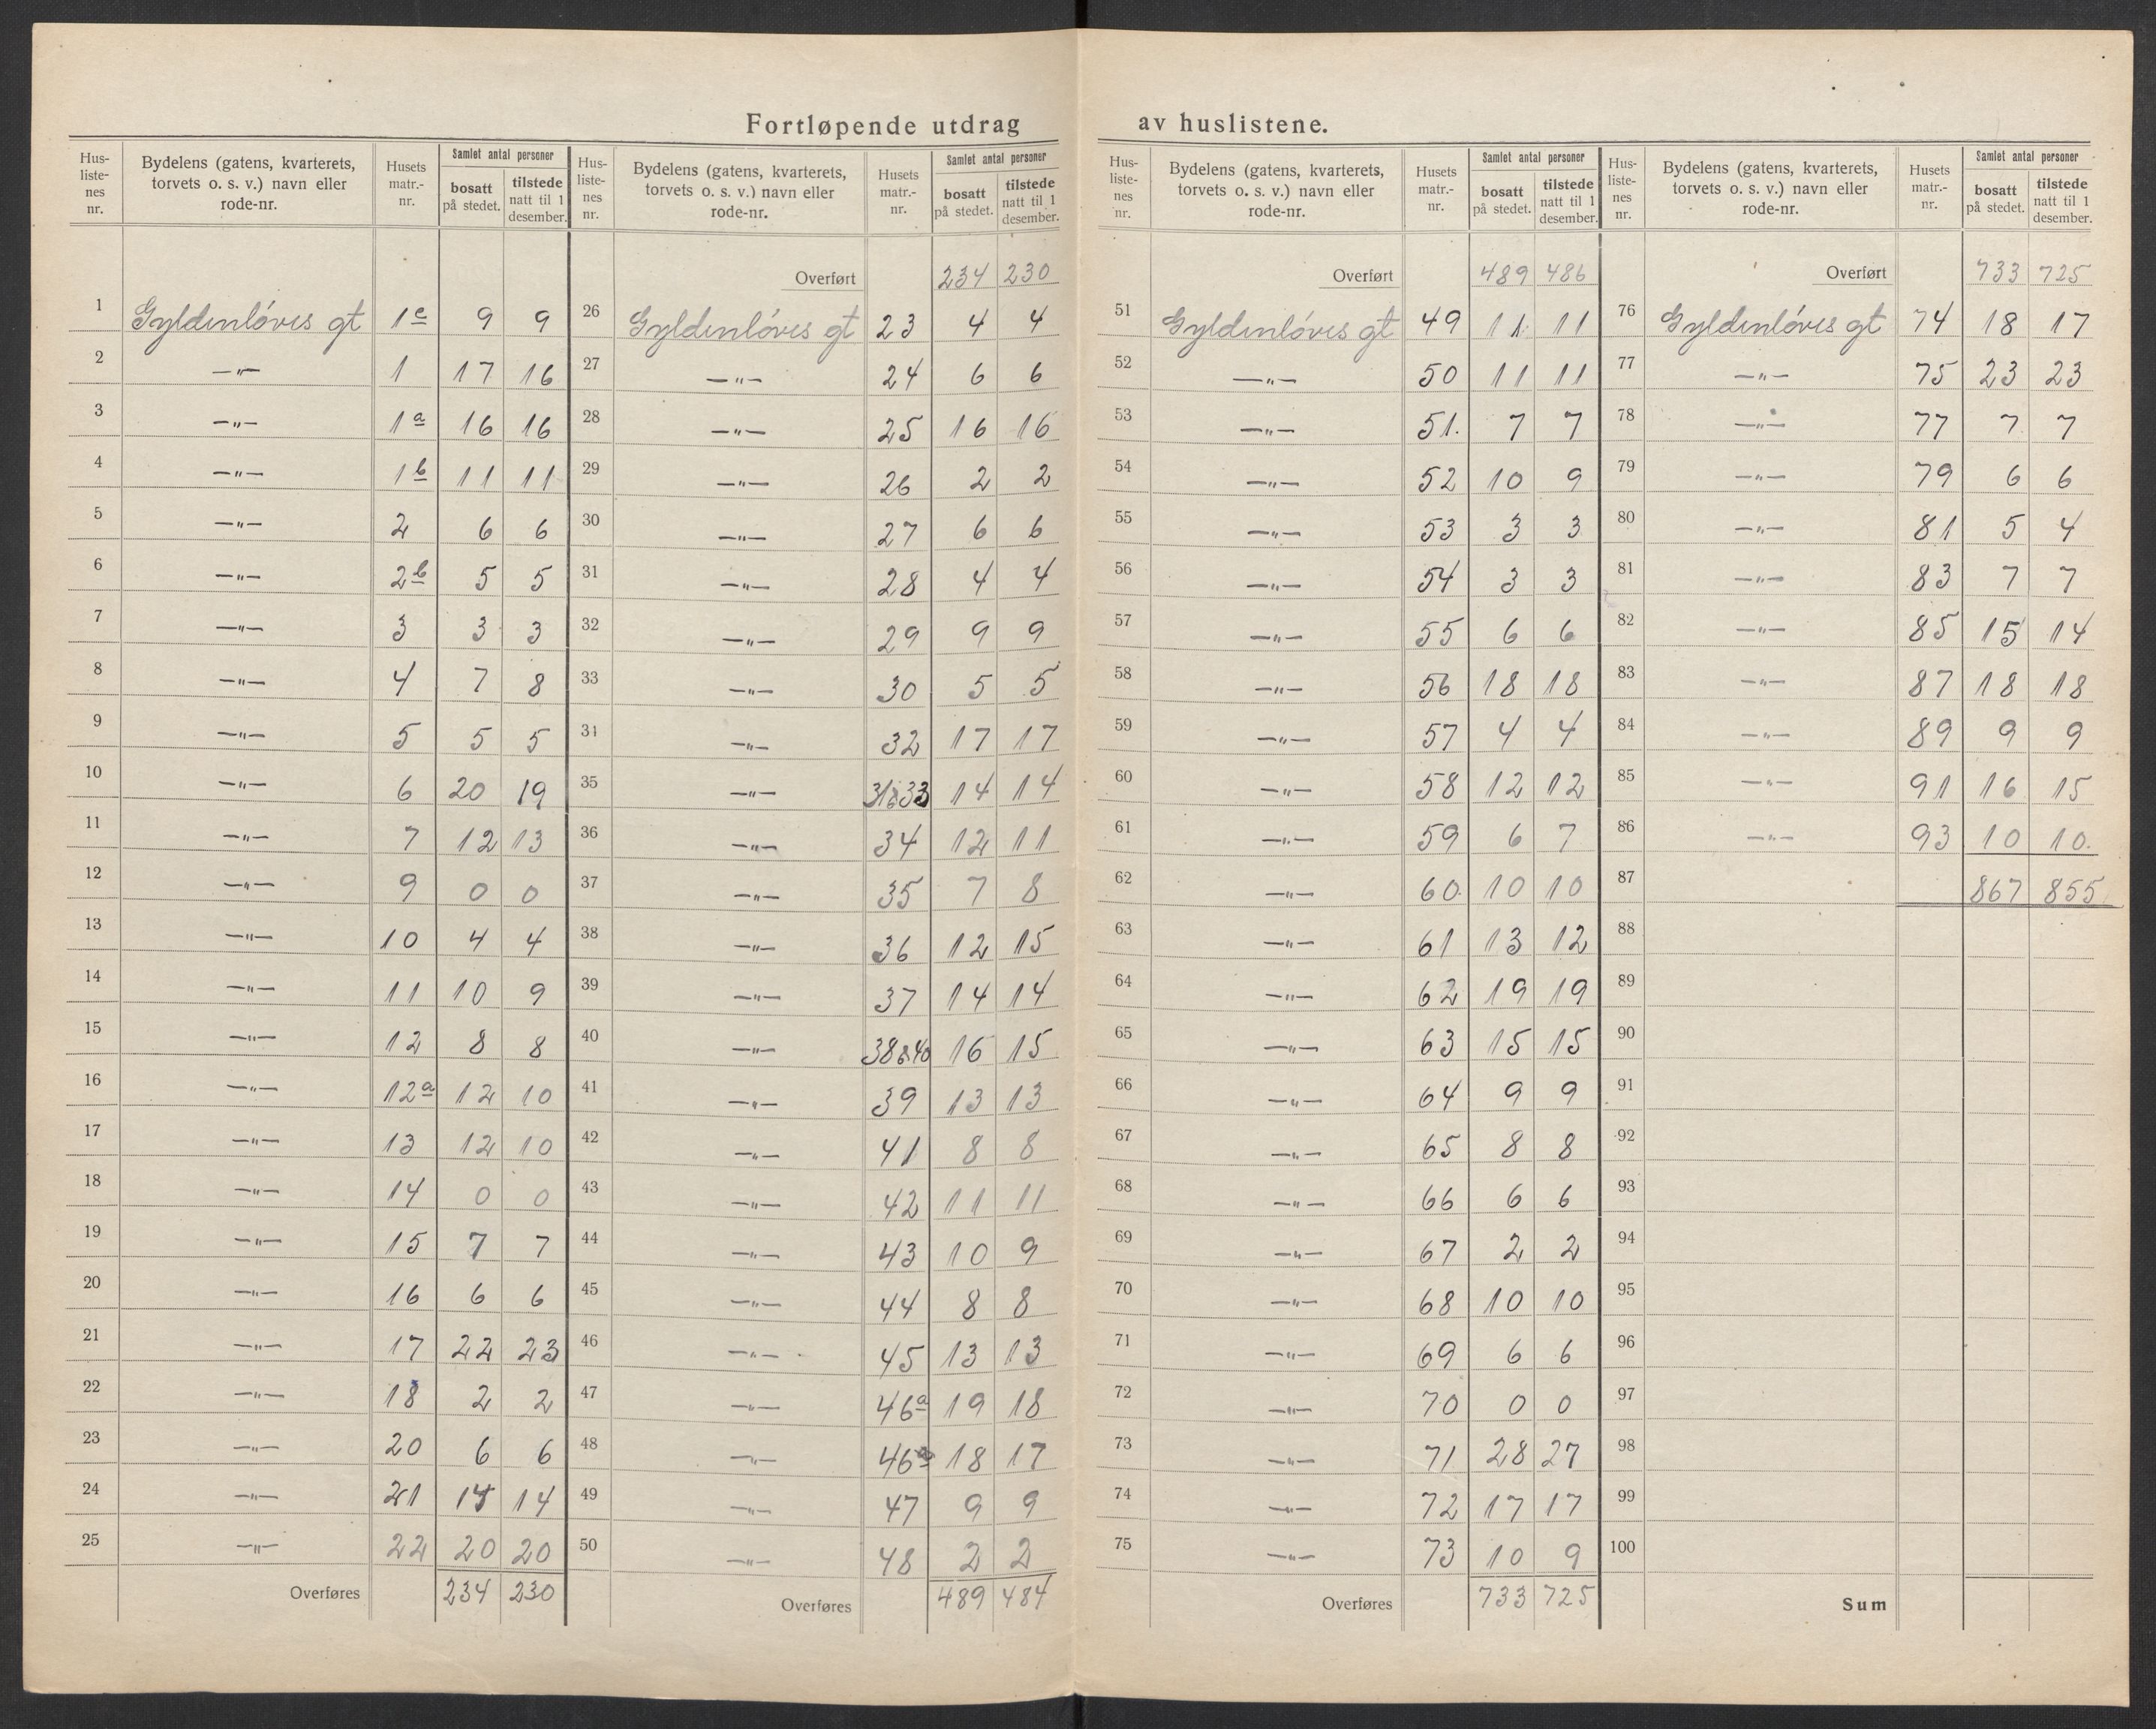 Fortløpende utdrag av huslistene.
Hus-liste-nes nr. | Bydelens (gatens, kvarterets, torvets o. s. v.) navn eller rode-nr. | Husets matr.-nr. | Samlet antal personer: bosatt på stedet. | tilstede natt til 1 desember.
1 Gyldenløves gt 1c 9 9
2 —"— 1 17 16
3 —"— 1a 16 16
4 —"— 1b 11 11
5 —"— 2 6 6
6 —"— 2b 5 5
7 —"— 3 3 3
8 —"— 4 7 8
9 —"— 5 5 5
10 —"— 6 20 19
11 —"— 7 12 13
12 —"— 9 0 0
13 —"— 10 4 4
14 —"— 11 10 9
15 —"— 12 8 8
16 —"— 12a 12 10
17 —"— 13 12 10
18 —"— 14 0 0
19 —"— 15 7 7
20 —"— 16 6 6
21 —"— 17 22 23
22 —"— 18 2 2
23 —"— 20 6 6
24 —"— 21 14
25 —"— 22 20 20
Overføres 234 230
Hus-liste-nes nr. | Bydelens (gatens, kvarterets, torvets o. s. v.) navn eller rode-nr. | Husets matr.-nr. | Samlet antal personer: bosatt på stedet. | tilstede natt til 1 desember.
Overført 234 230
26 Gyldenløves gt 23 4 4
27 —"— 24 6 6
28 —"— 25 16 16
29 —"— 26 2 2
30 —"— 27 6 6
31 —"— 28 4 4
32 —"— 29 9 9
33 —"— 30 5 5
31 —"— 32 17 17
35 —"— 31&33 14 14
36 —"— 34 12 11
37 —"— 35 7 8
38 —"— 36 12 15
39 —"— 37 14 14
40 —"— 38&40 16 15
41 —"— 39 13 13
42 —"— 41 8 8
43 —"— 42 11 11
44 —"— 43 10 9
45 —"— 44 8 8
46 —"— 45 13 13
47 —"— 46a 19 18
48 —"— 46 18 17
49 —"— 47 9 9
50 —"— 48 2 2
Overføres 489 484
Hus-liste-nes nr. | Bydelens (gatens, kvarterets, torvets o. s. v.) navn eller rode-nr. | Husets matr.-nr. | Samlet antal personer: bosatt på stedet. | tilstede natt til 1 desember.
Overført 489 486
51 Gyldenløves gt 49 11 11
52 —"— 50 11 11
53 —"— 51. 7 7
54 —"— 52 10 9
55 —"— 53 3 3
56 —"— 54 3 3
57 —"— 55 6 6
58 —"— 56 18 18
59 —"— 57 4 4
60 —"— 58 12 12
61 —"— 59 6 7
62 —"— 60. 10 10
63 —"— 61 13 12
64 —"— 62 19 19
65 —"— 63 15 15
66 —"— 64 9 9
67 —"— 65 8 8
68 —"— 66 6 6
69 —"— 67 2 2
70 —"— 68 10 10
71 —"— 69 6 6
72 —"— 70 0 0
73 —"— 71 28 27
74 —"— 72 17 17
75 —"— 73 10 9
Overføres 733 725
Hus-liste-nes nr. | Bydelens (gatens, kvarterets, torvets o. s. v.) navn eller rode-nr. | Husets matr.-nr. | Samlet antal personer: bosatt på stedet. | tilstede natt til 1 desember.
Overført 733 725
76 Gyldenløves gt 74 18 17
77 —"— 75 23 23
78 —"— 77 7 7
79 —"— 79 6 6
80 —"— 81 5 4
81 —"— 83 7 7
82 —"— 85 15 14
83 —"— 87 18 18
84 —"— 89 9 9
85 —"— 91 16 15
86 —"— 93 10 10.
87 867 855
88
89
90
91
92
93
94
95
96
97
98
99
100
Sum